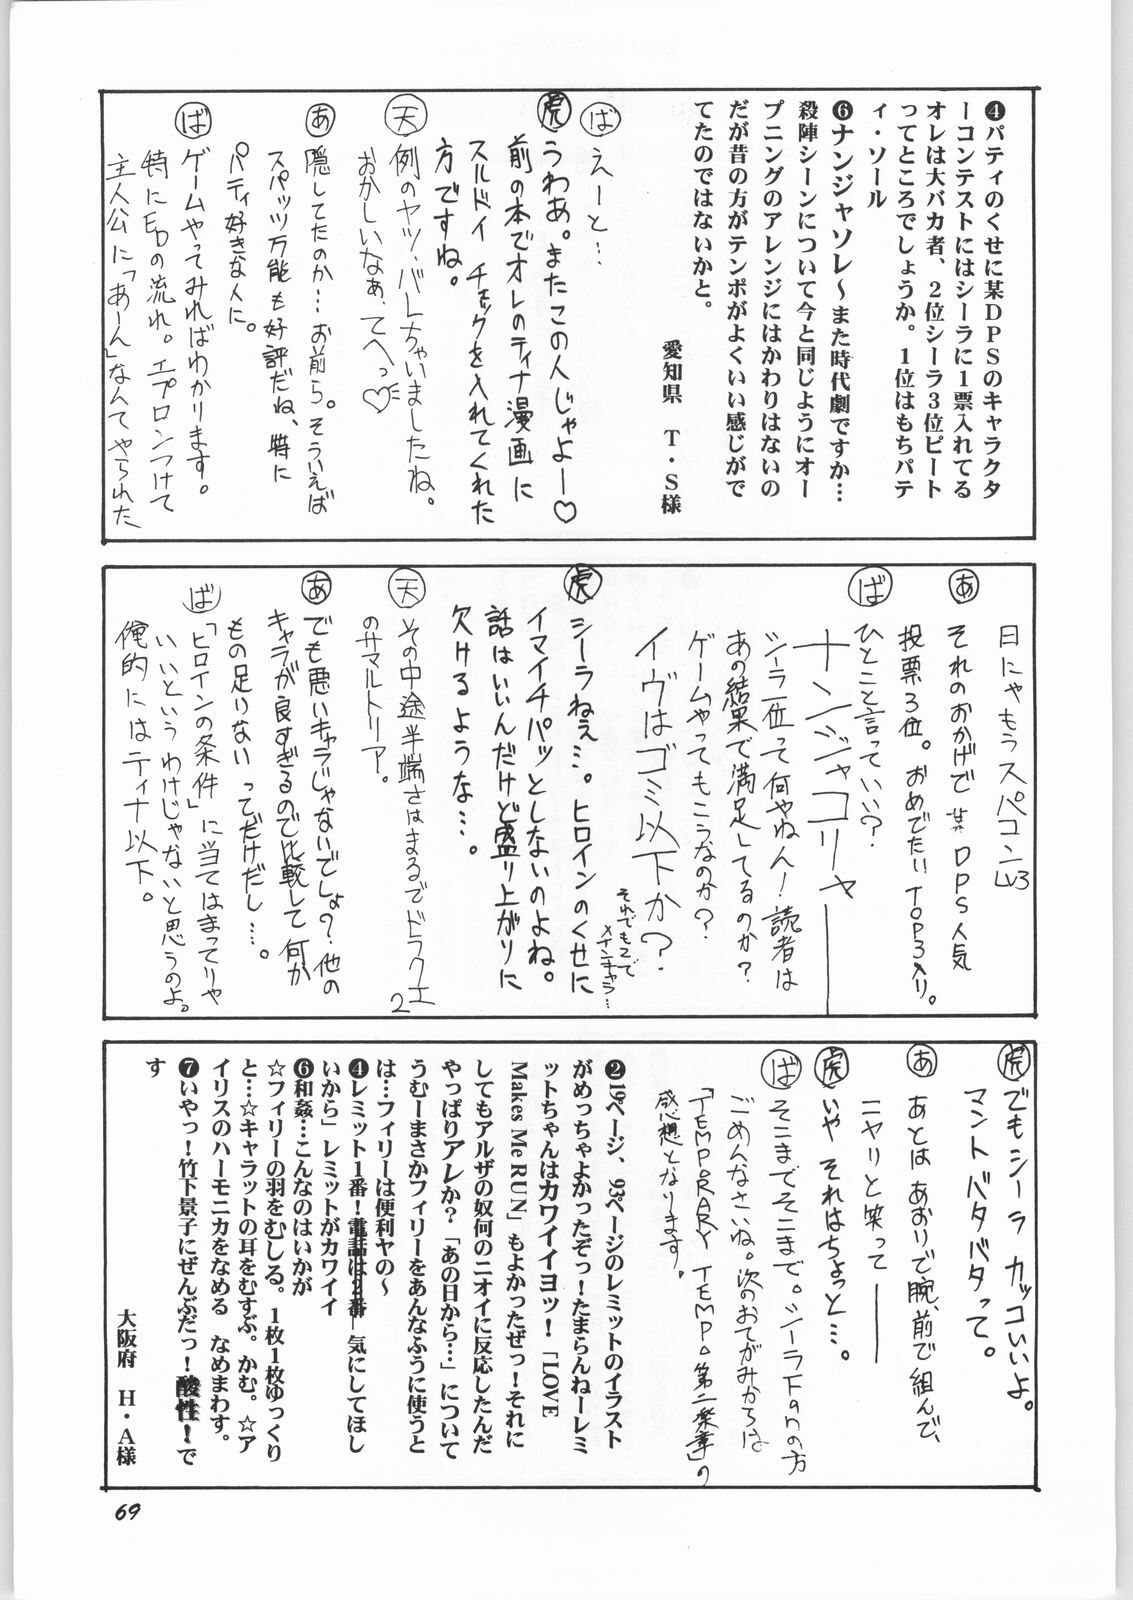 ❹パティのくせに某DPSのキャラクタ
ーコンテストにはシーラに1票入れてる
オレは大バカ者、2位シーラ3位ピート
ってところでしょうか。1位はもちパテ
ィ・ソール
❻ナンジャソレ〜また時代劇ですか…
殺陣シーンについて今と同じようにオー
プニングのアレンジにはかわりはないの
だが昔の方がテンポがよくいい感じがで
てたのではないかと。
愛知県　T・S様
ば えーと…
虎 うわあ。またこの人じゃよー♡
前の本でオレのティナ漫画に
スルドイ チェックを入れてくれた
方ですね。
天 例のヤツ、バレちゃいましたね。
おかしいなぁ、てへっ♡
あ 隠してたのか…お前ら。そういえば
スパッツ万能も好評だね、特に
パティ好きな人に。
ば ゲームやってみればわかります。
特にEDの流れ。エプロンつけて
主人公に「あーん」なんてやられた
日にゃもうスパコンLV3
あ それのおかげで某DPS人気
投票3位。おめでたいTOP3入り。
ば ひとこと言っていい？
ナンジャコリャ――
シーラ一位って何やねん！読者は
あの結果で満足してるのか？
ゲームやってもこうなのか？
イヴはゴミ以下か？
それでもってメインキャラ…
虎 シーラねぇ…。ヒロインのくせに
イマイチパッとしないのよね。
話はいいんだけど盛り上がりに
欠けるような…。
天 その中途半端さはまるでドラクエ2
のサマルトリア。
あ でも悪いキャラじゃないでしょ？他の
キャラが良すぎるので比較して何か
もの足りないってだけだし…。
ば 「ヒロインの条件」に当てはまってりゃ
いいというわけじゃないと思うのよ。
俺的にはティナ以下。
虎 でもシーラ カッコいいよ。
マントバタバタって。
あ あとはあおりで腕、前で組んで、
ニヤリと笑って――
虎 いや それはちょっと…。
ば そこまでそこまで。シーラFanの方
ごめんなさいね。次のおてがみからは
「TEMPORARY TEMPO第二楽章」の
感想となります。
❷19ページ、93ページのレミットのイラスト
がめっちゃよかったぞっ！たまらんねーレミ
ットちゃんはカワイイヨッ！「LOVE
Makes Me RUN」もよかったぜっ！それに
してもアルザの奴何のニオイに反応したんだ
やっぱりアレか？「あの日から…」について
うむーまさかフィリーをあんなふうに使うと
は…フィリーは便利ヤの〜
❹レミット1番！電話は2番―気にしてほし
いから」レミットがカワイイ
❻和姦…こんなのはいかが
☆フィリーの羽をむしる。1枚1枚ゆっくり
と…☆キャラットの耳をむすぶ。かむ。☆ア
イリスのハーモニカをなめる なめまわす。
❼いやっ！竹下景子にぜんぶだっ！酸性！で
す
大阪府　H・A様
69